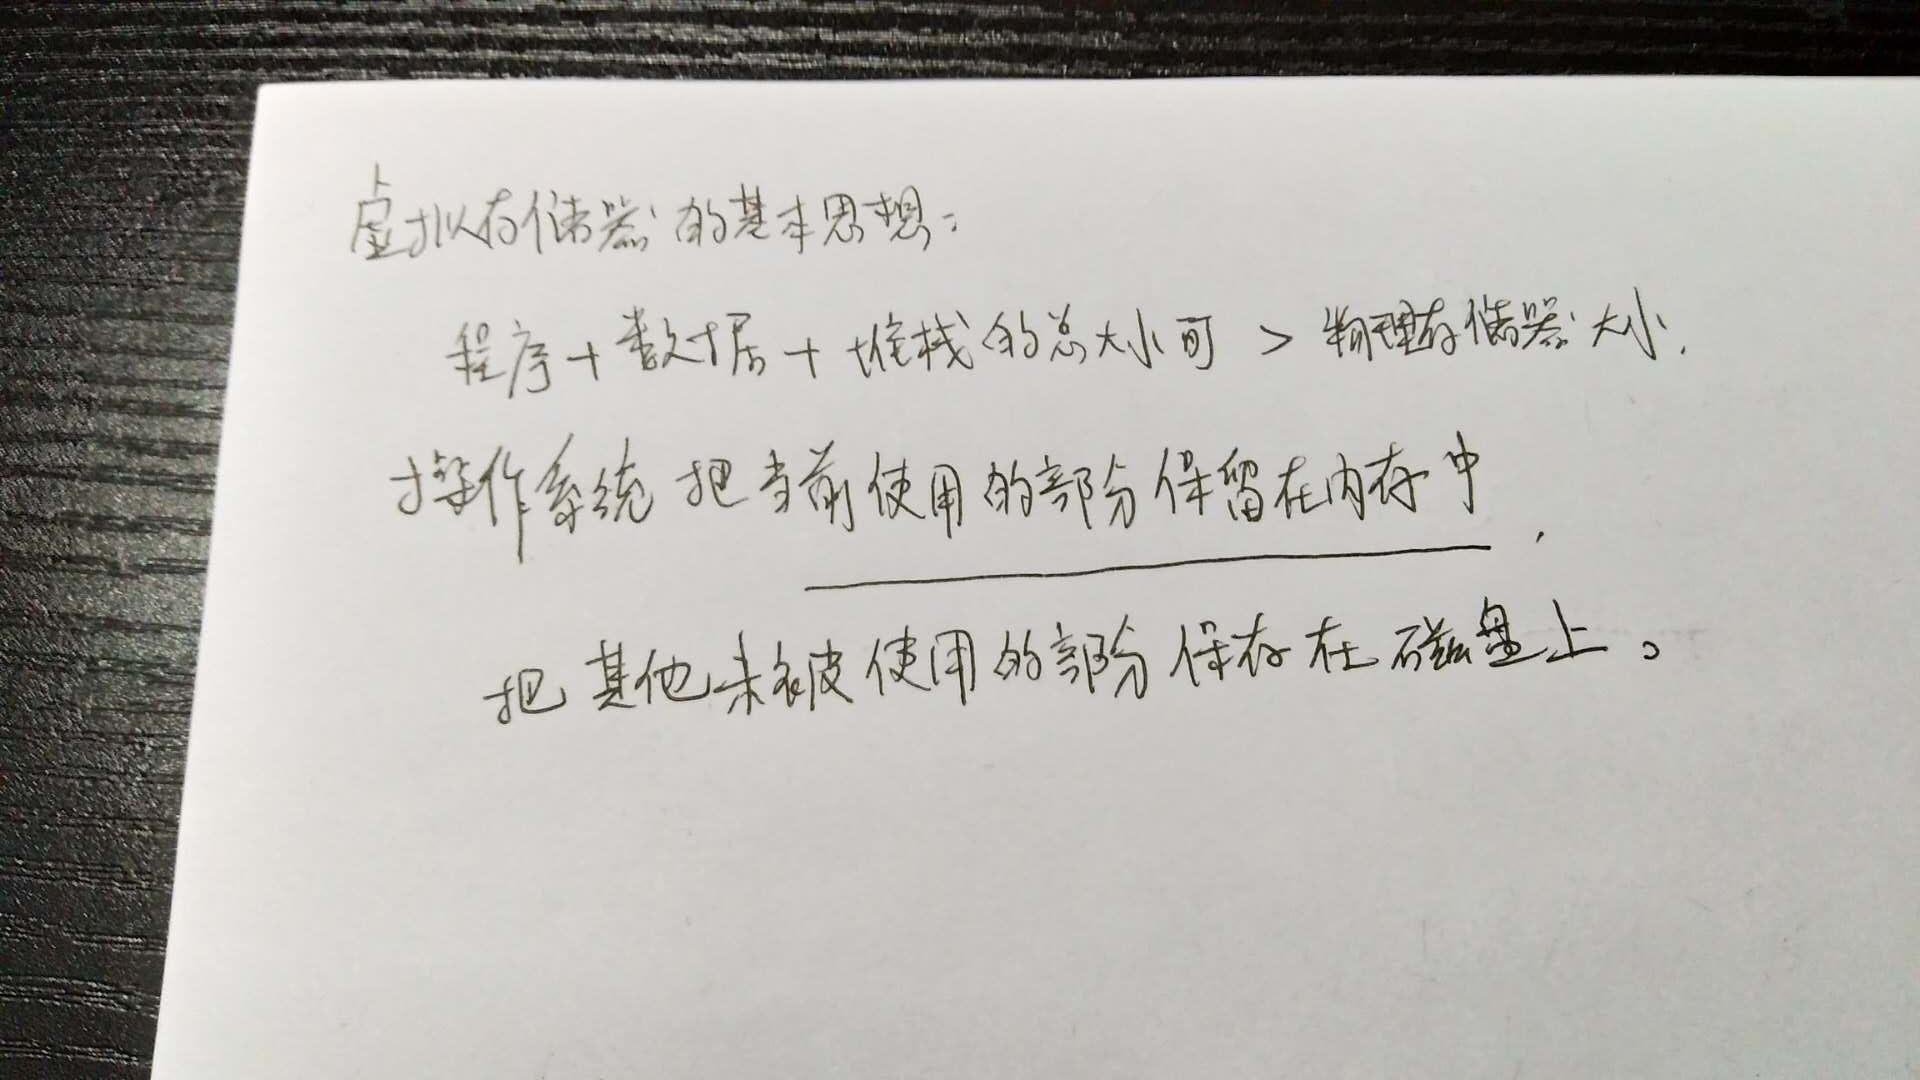 虚拟存储器的基本思想:
程序+数据+堆栈的总大小可 > 物理存储器大小,
操作系统把当前使用的部分保留在内存中,
把其他未被使用的部分保存在磁盘上。